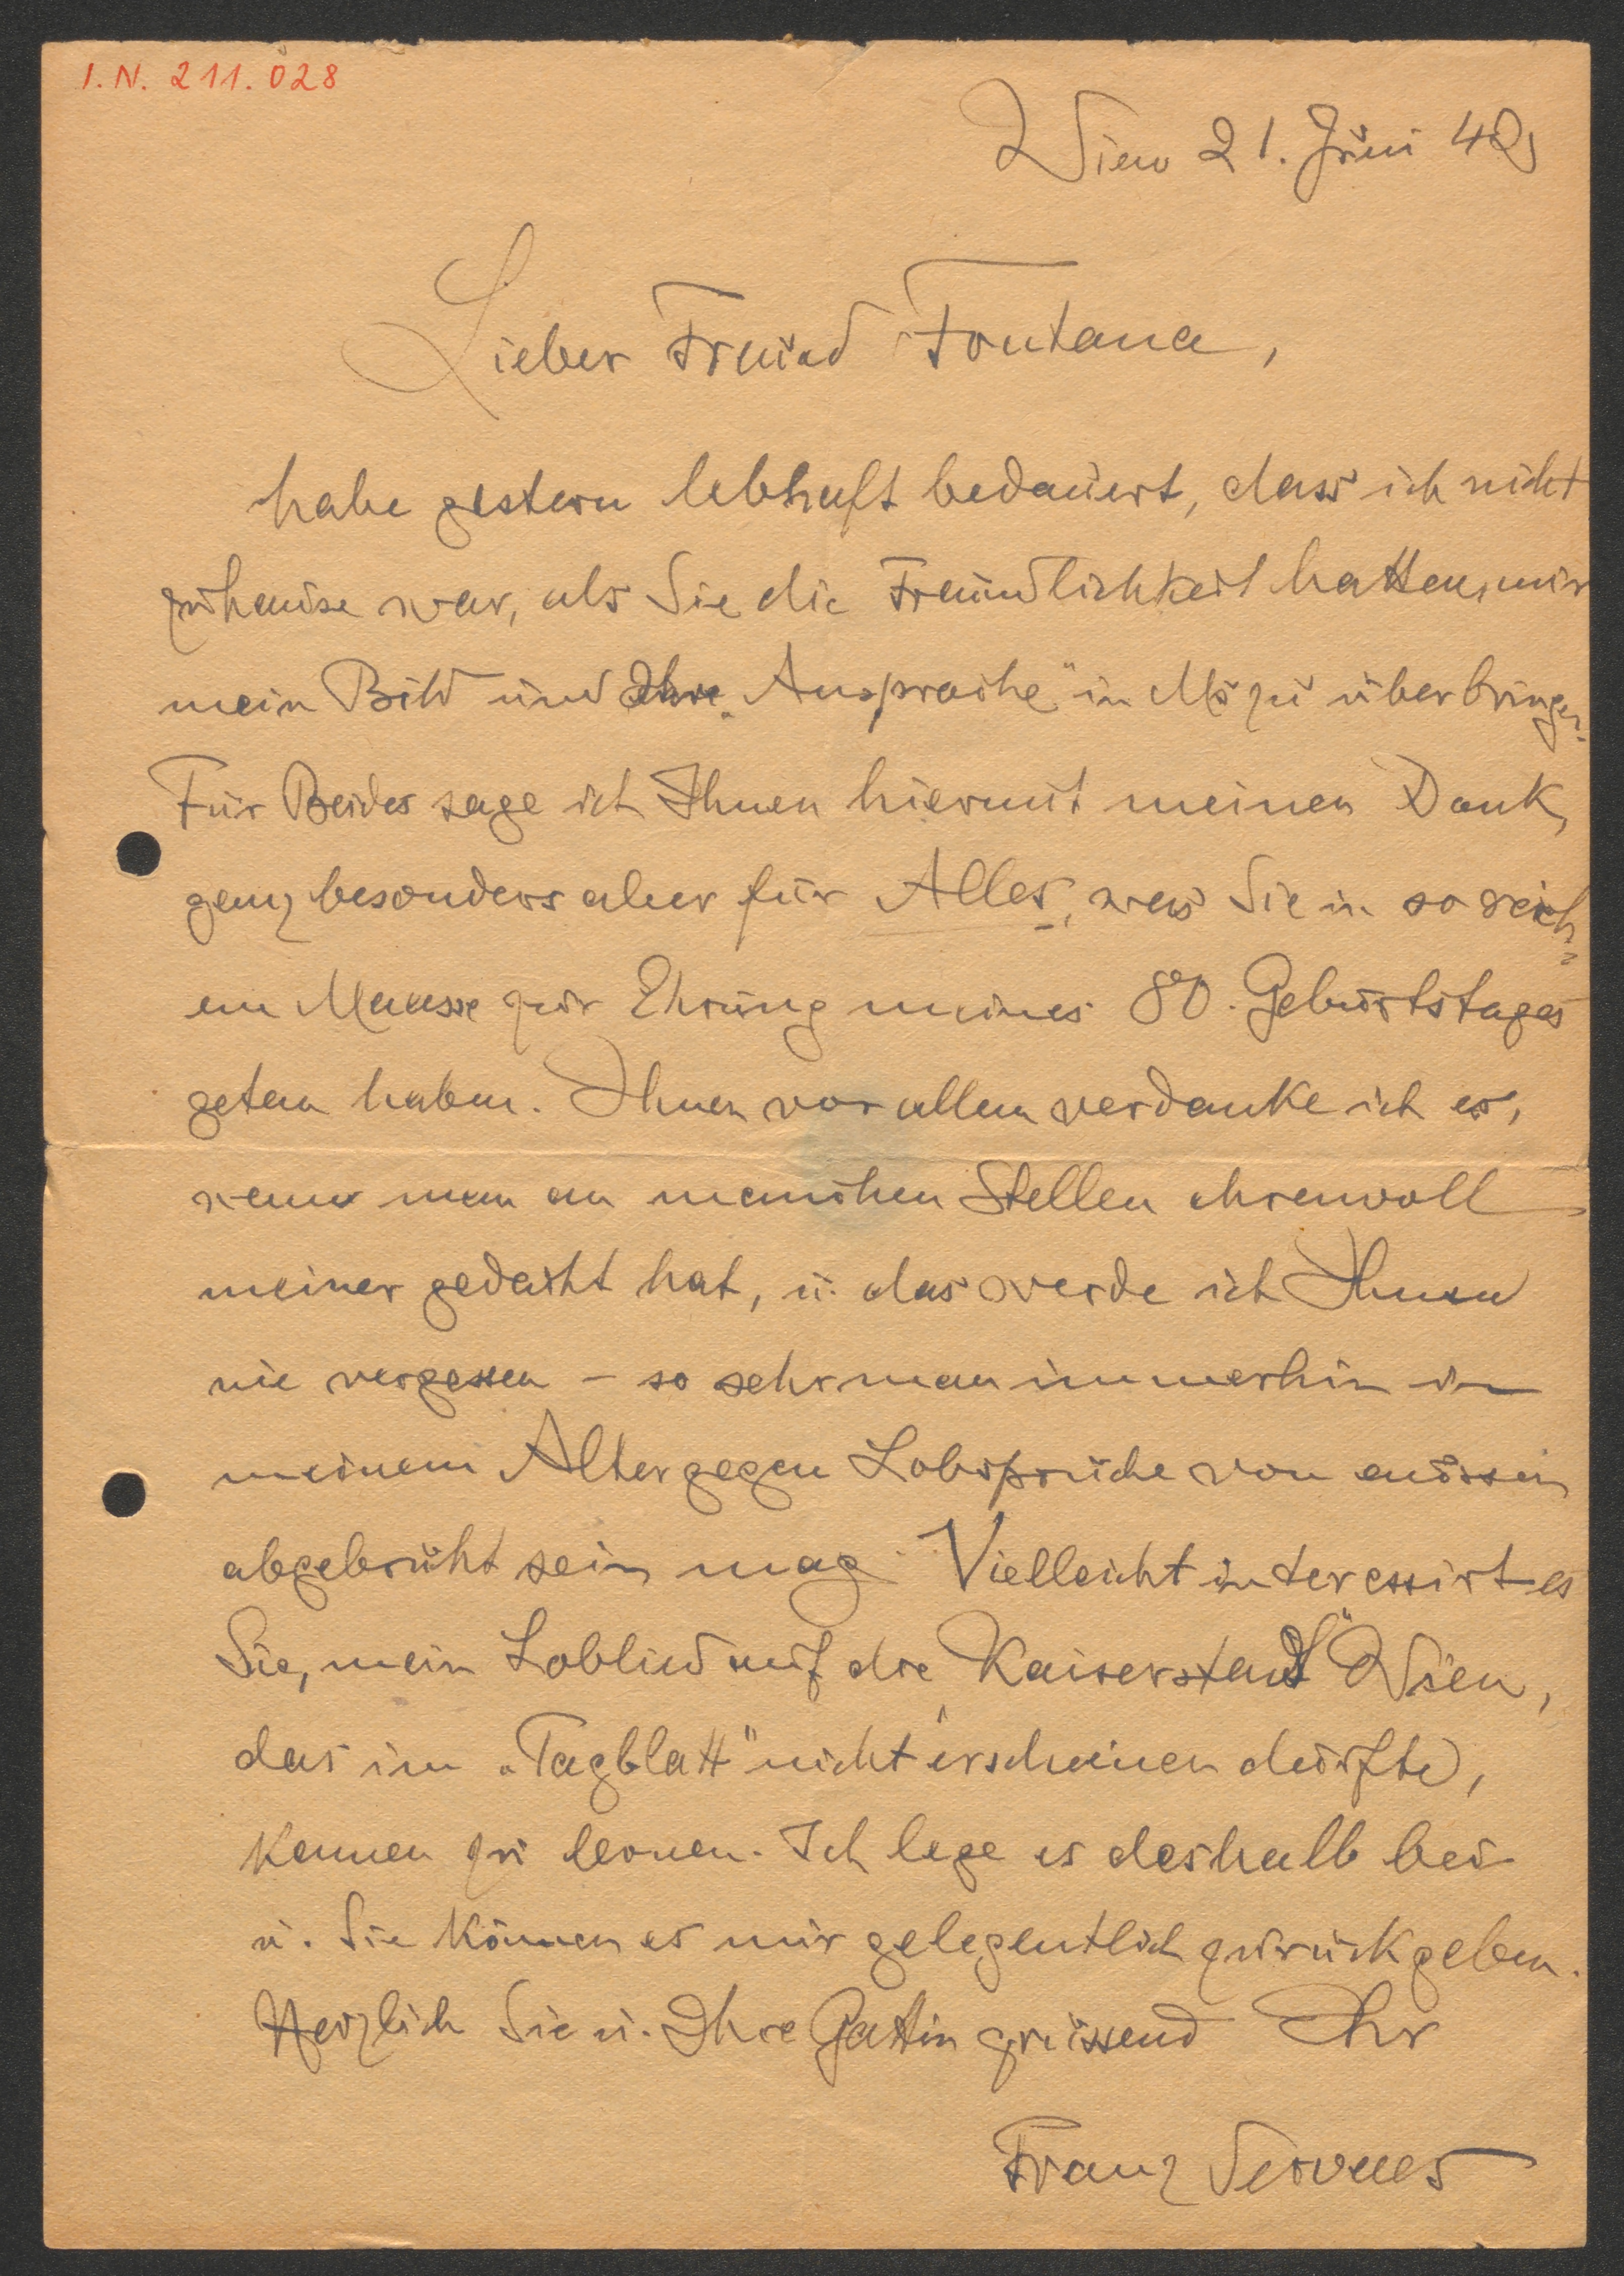 I.N. 211.028
Wien 21. Juni 42
Lieber Freund Fontana,
habe gestern lebhaft bedauert, dass ich nicht
zuhause war, als Sie die Freundlichkeit hatten, mir
mein Bild und Ihre „Ansprache" in Ms zu überbringen.
Für Beides sage ich Ihnen hiermit meinen Dank,
ganz besonders aber für Alles, was Sie in so reich-
em Maasse zur Ehrung meines 80. Geburtstages
getan haben. Ihnen vor allem verdanke ich es,
wenn man an manchen Stellen ehrenvoll
meiner gedacht hat, u. das werde ich Ihnen
nie vergessen – so sehr man immerhin in
meinem Alter gegen Lobsprüche von aussen
abgebrüht sein mag. Vielleicht interessirt es
Sie, mein Loblied auf die „Kaiserstadt" Wien,
das im „Tagblatt" nicht erscheinen durfte,
kennen zu lernen. Ich lege es deshalb bei
u. Sie können es mir gelegentlich zurückgeben.
Herzlich Sie u. Ihre Gattin grüssend Ihr
Franz Servaes